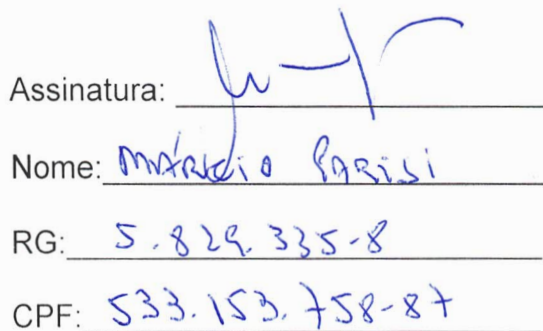 Assinatura:
Nome: MÁRCIO PARISI
RG: 5.829.335-8
CPF: 533.153.758-87